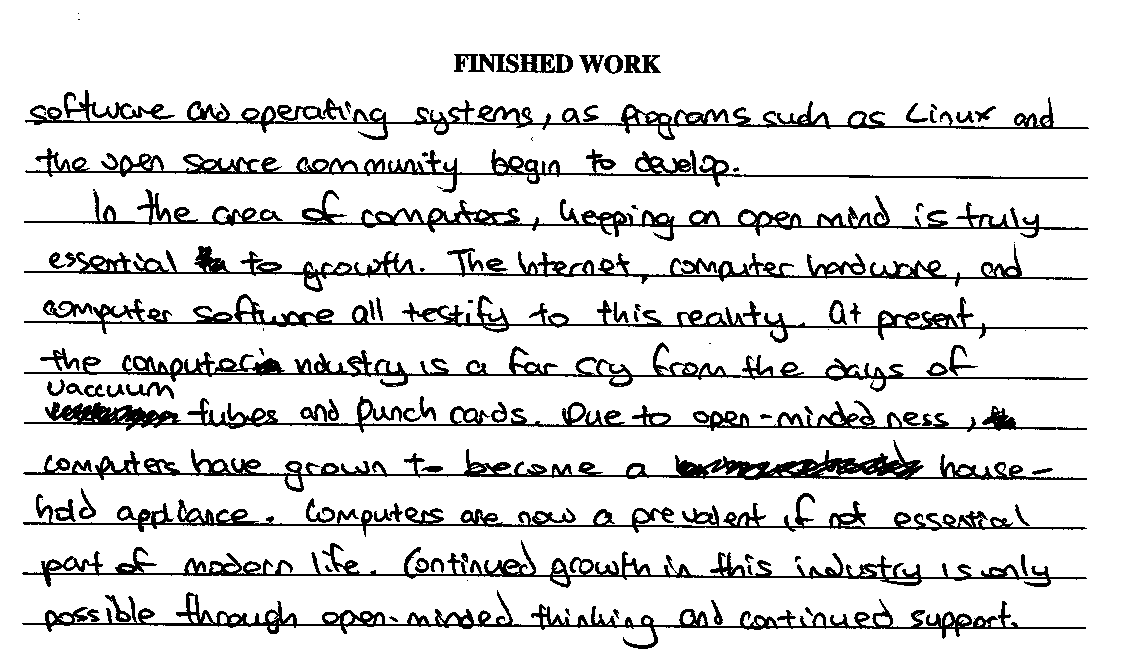 FINISHED WORK
software and operating systems, as programs such as Linux and
the open source community begin to develop.
In the area of computers, keeping an open mind is truly
essential to growth. The Internet, computer hardware, and
computer software all testify to this reality. At present,
the computer industry is a far cry from the days of
vaccuum
tubes and punch cards. Due to open-mindedness,
computers have grown to become a house-
hold appliance. Computers are now a prevalent if not essential
part of modern life. Continued growth in this industry is only
possible through open-minded thinking and continued support.